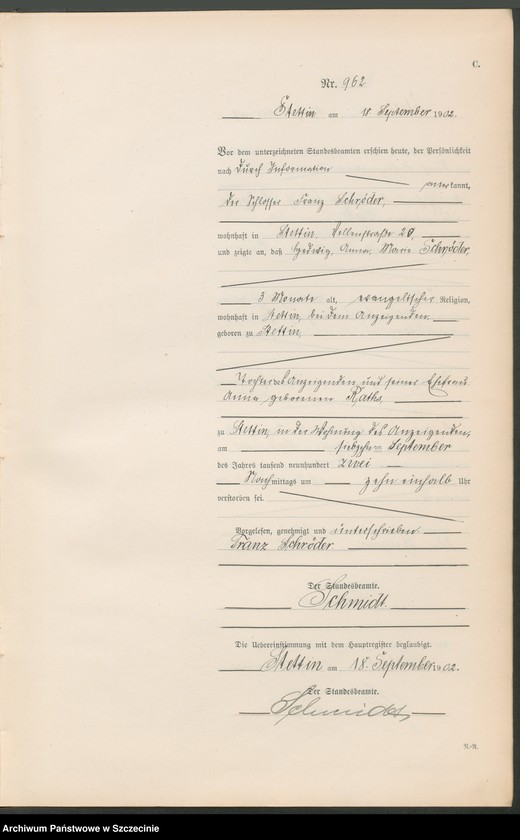 C.
Nr. 962
Stettin am 18 September 1902.
Vor dem unterzeichneten Standesbeamten erschien heute, der Persönlichkeit
nach durch Information
anerkannt,
der Schlosser Franz Schröder,
wohnhaft in Stettin, 20,
und zeigte an, daß Hedwig, Anna, Marie Schröder,
3 Monate alt, evangelischer Religion,
wohnhaft in Stettin, bei dem Anzeigenden
geboren zu Stettin,
Tochter des Anzeigenden und seiner Ehefrau
Anna geborenen Raths,
zu Stettin, in der Wohnung des Anzeigenden,
am siebzehn September
des Jahres tausend neunhundert zwei
Nachmittags um zehn einhalb Uhr
verstorben sei.
Vorgelesen, genehmigt und unterschrieben
Franz Schröder
Der Standesbeamte.
Schmidt.
Die Uebereinstimmung mit dem Hauptregister beglaubigt.
Stettin am 18. September 1902.
Der Standesbeamte.
Schmidt
N.-R.
Archiwum Państwowe w Szczecinie